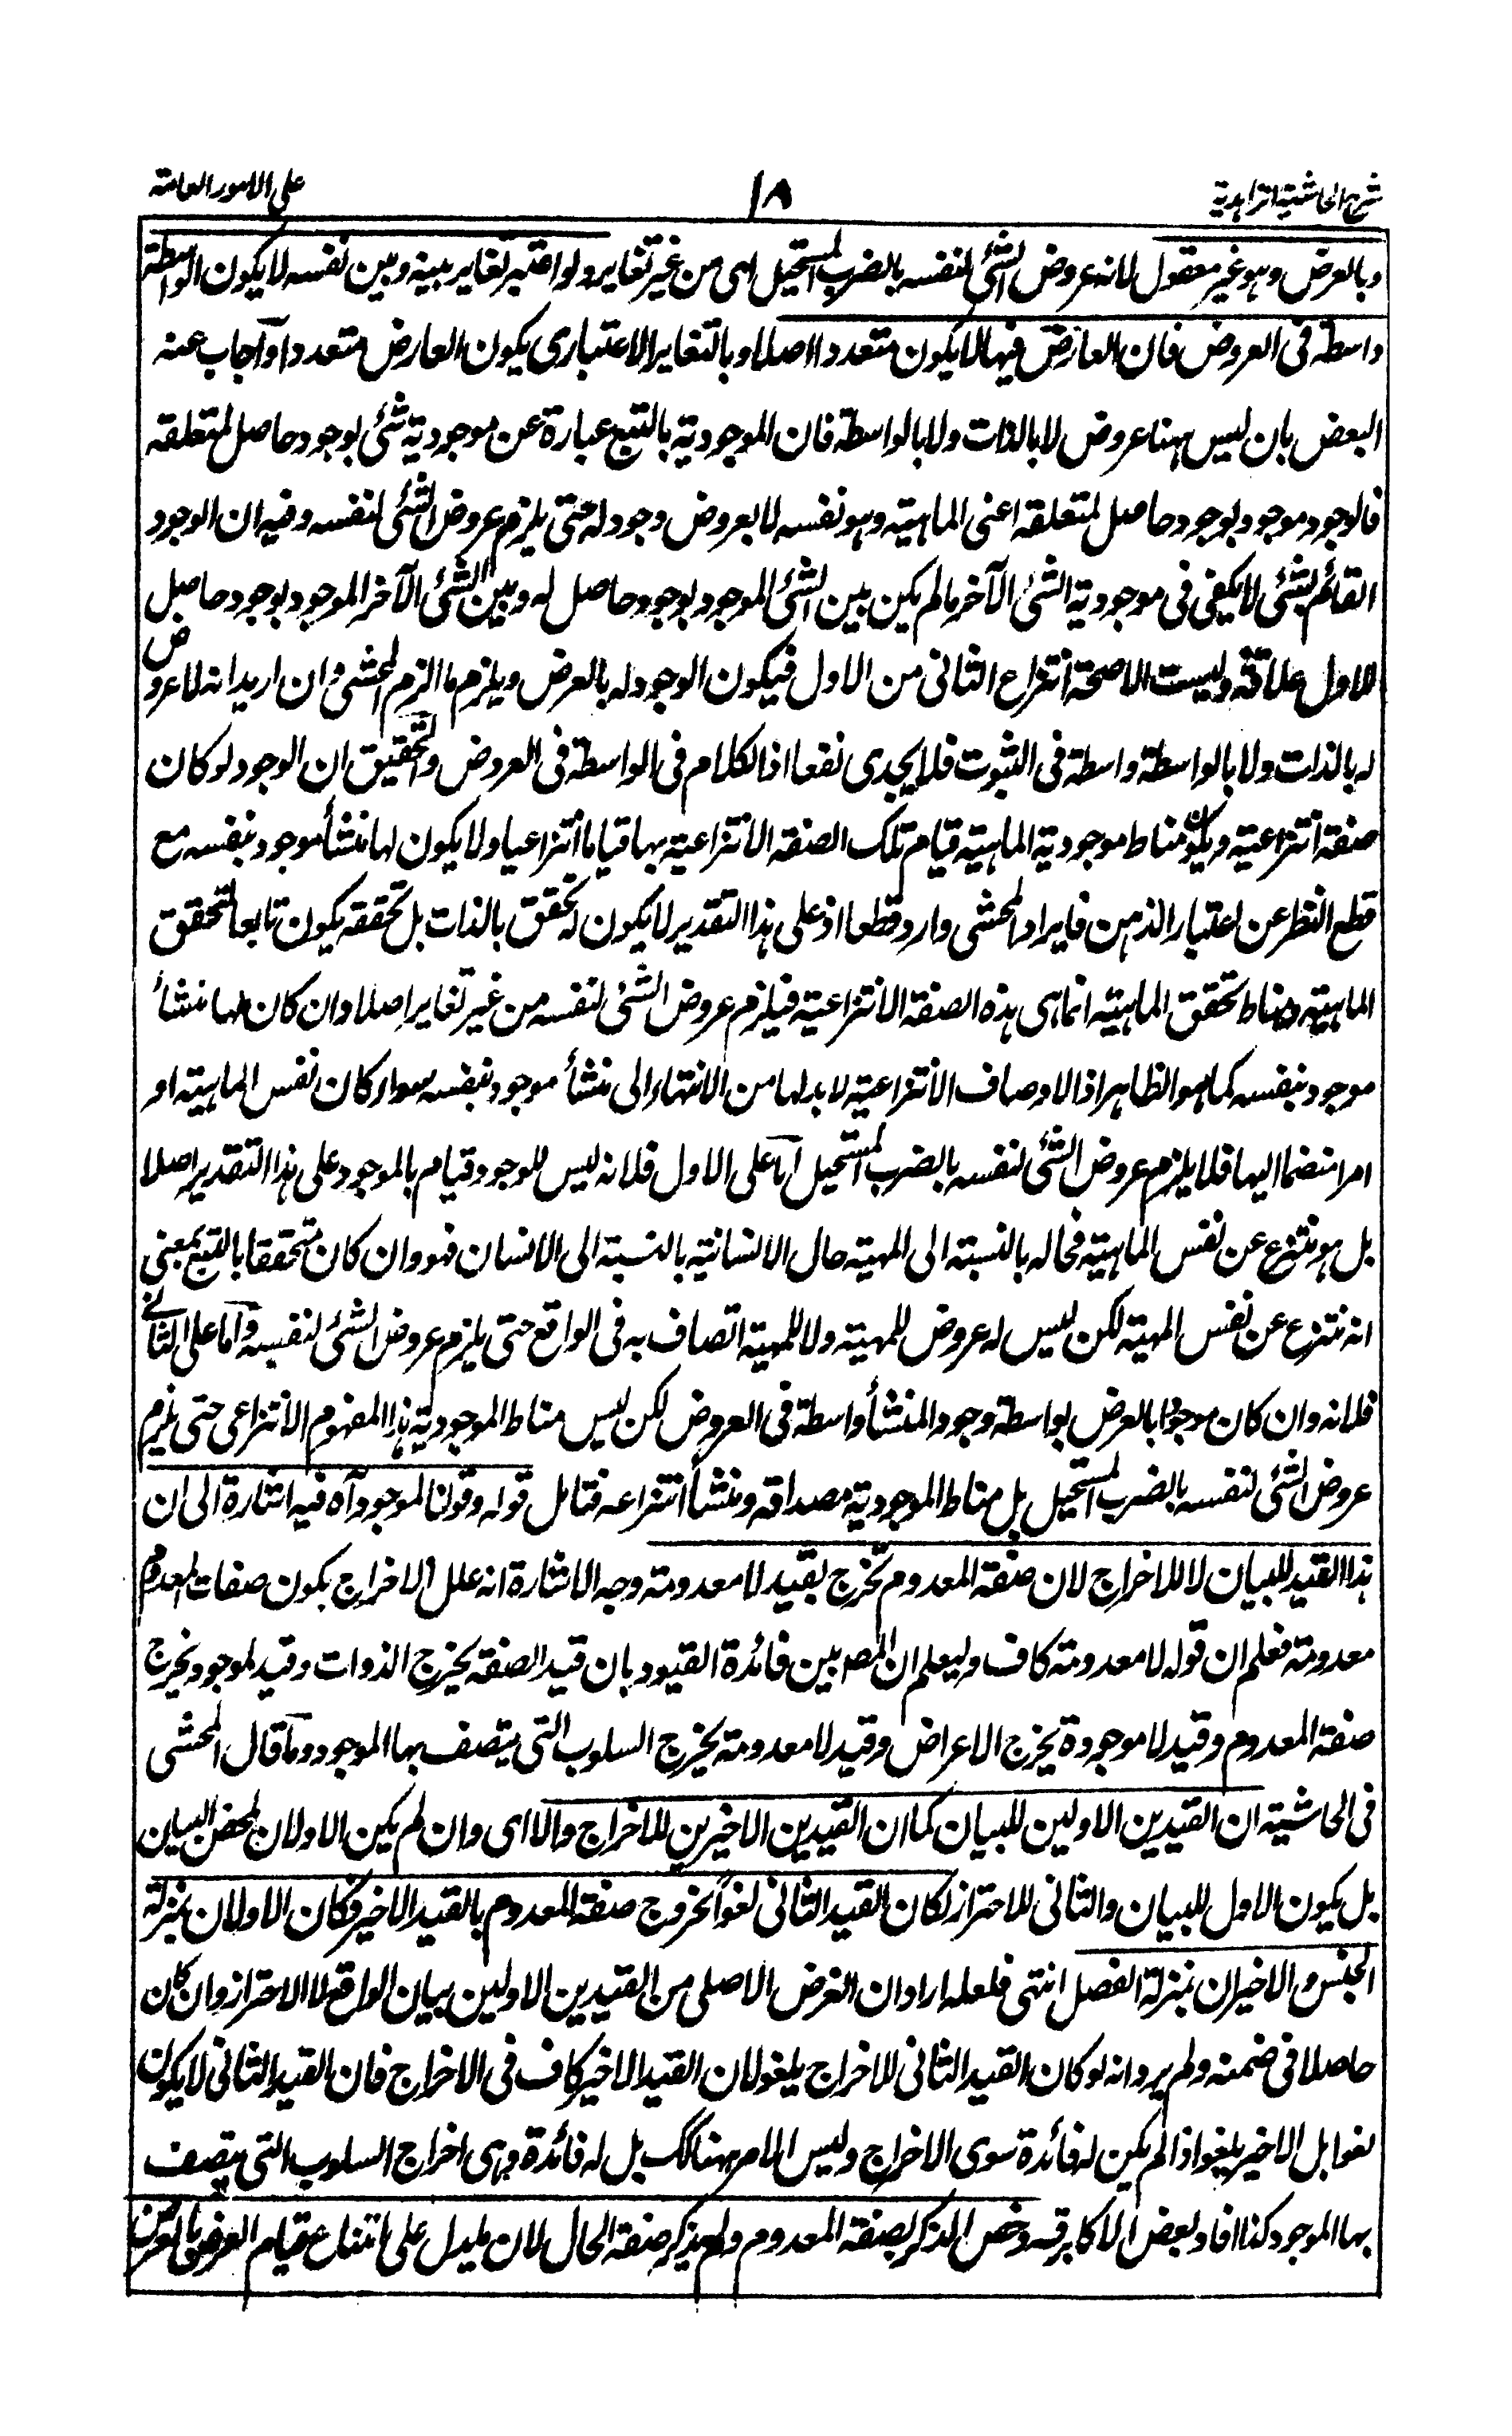 شرح الحاشية الزاهدية
١٨
على الامور العامة
وبالعرض وهو غير معقول لانه عروض الشئ لنفسه بالضرب المستحيل اى من غير تغاير ولو اعتبر تغاير بينه وبين نفسه لا يكون الواسطة
واسطة فى العروض فان العارض فيها لا يكون متعددا اصلا وبالتغاير الاعتبارى يكون العارض متعددا واجاب عنه
البعض بان ليس ههنا عروض لا بالذات ولا بالواسطة فان الموجودية بالتبع عبارة عن موجودية شئ بوجود حاصل لمتعلقه
فالوجود موجود بوجود حاصل لمتعلقه اعنى الماهية وهو نفسه لا بعروض وجود له حتى يلزم عروض الشئ لنفسه وفيه ان الوجود
القائم بشئ لا يكفى فى موجودية الشئ الآخر ما لم يكن بين الشئ الموجود بوجود حاصل له وبين الشئ الآخر الموجود بوجود حاصل
للاول علاقة وليست الا صحة انتزاع الثانى من الاول فيكون الوجود له بالعرض ويلزم ما الزم المحشى وان اريد انه لا عروض
له بالذات ولا بالواسطة واسطة فى الثبوت فلا يجدى نفعا اذ الكلام فى الواسطة فى العروض والتحقيق ان الوجود لو كان
صفة انتزاعية ويكون مناط موجودية الماهية قيام تلك الصفة الانتزاعية بها قياما انتزاعيا ولا يكون لها منشأ موجود بنفسه مع
قطع النظر عن اعتبار الذهن فايراد المحشى وارد قطعا اذ على هذا التقدير لا يكون له تحقق بالذات بل تحققه يكون تابعا لتحقق
الماهية ومناط تحقق الماهية انما هى هذه الصفة الانتزاعية فيلزم عروض الشئ لنفسه من غير تغاير اصلا وان كان لها منشأ
موجود بنفسه كما هو الظاهر اذ الاوصاف الانتزاعية لا بد لها من الانتهاء الى منشأ موجود بنفسه سواء كان نفس الماهية او
امرا منضما اليها فلا يلزم عروض الشئ لنفسه بالضرب المستحيل اما على الاول فلانه ليس للوجود قيام بالموجود على هذا التقدير اصلا
بل هو منتزع عن نفس الماهية فحاله بالنسبة الى المهية حال الانسانية بالنسبة الى الانسان فهو وان كان متحققا بالتبع بمعنى
انه منتزع عن نفس المهية لكن ليس له عروض للمهية ولا للمهية اتصاف به فى الواقع حتى يلزم عروض الشئ لنفسه واما على الثانى
فلانه وان كان موجودا بالعرض بواسطة وجود المنشأ واسطة فى العروض لكن ليس مناط الموجودية هذا المفهوم الانتزاعى حتى يلزم
عروض الشئ لنفسه بالضرب المستحيل بل مناط الموجودية مصداقه ومنشأ انتزاعه فتامل قوله وقولنا لموجود آه فيه اشارة الى ان
هذا القيد للبيان لا للاخراج لان صفة المعدوم تخرج بقيد لا معدومة وجه الاشارة انه علل الاخراج بكون صفات المعدوم
معدومة فعلم ان قوله لا معدومة كاف وليعلم ان المص بين فائدة القيود بان قيد الصفة يخرج الذوات وقيد لموجود يخرج
صفة المعدوم وقيد لا موجودة يخرج الاعراض وقيد لا معدومة يخرج السلوب التى يتصف بها الموجود وما قال المحشى
فى الحاشية ان القيدين الاولين للبيان كما ان القيدين الاخيرين للاخراج والا اى وان لم يكن الاولان لمحض البيان
بل يكون الاول للبيان والثانى للاحتراز لكان القيد الثانى لغوا لخروج صفة المعدوم بالقيد الاخير فكان الاولان بمنزلة
الجنس والاخيران بمنزلة الفصل انتهى فلعله اراد ان الغرض الاصلى من القيدين الاولين بيان الواقع لا الاحتراز وان كان
حاصلا فى ضمنه ولم يرد انه لو كان القيد الثانى للاخراج يلغو لان القيد الاخير كاف فى الاخراج فان القيد الثانى لا يكون
لغوا بل الاخير يلغو اذا لم يكن له فائدة سوى الاخراج وليس الامر ههنا كك بل له فائدة وهى اخراج السلوب التى يتصف
بها الموجود كذا افاد بعض الاكابر قسه وخص الذكر بصفة المعدوم ولم يذكر صفة الحال لان ما يدل على امتناع قيام العرض بالعرض